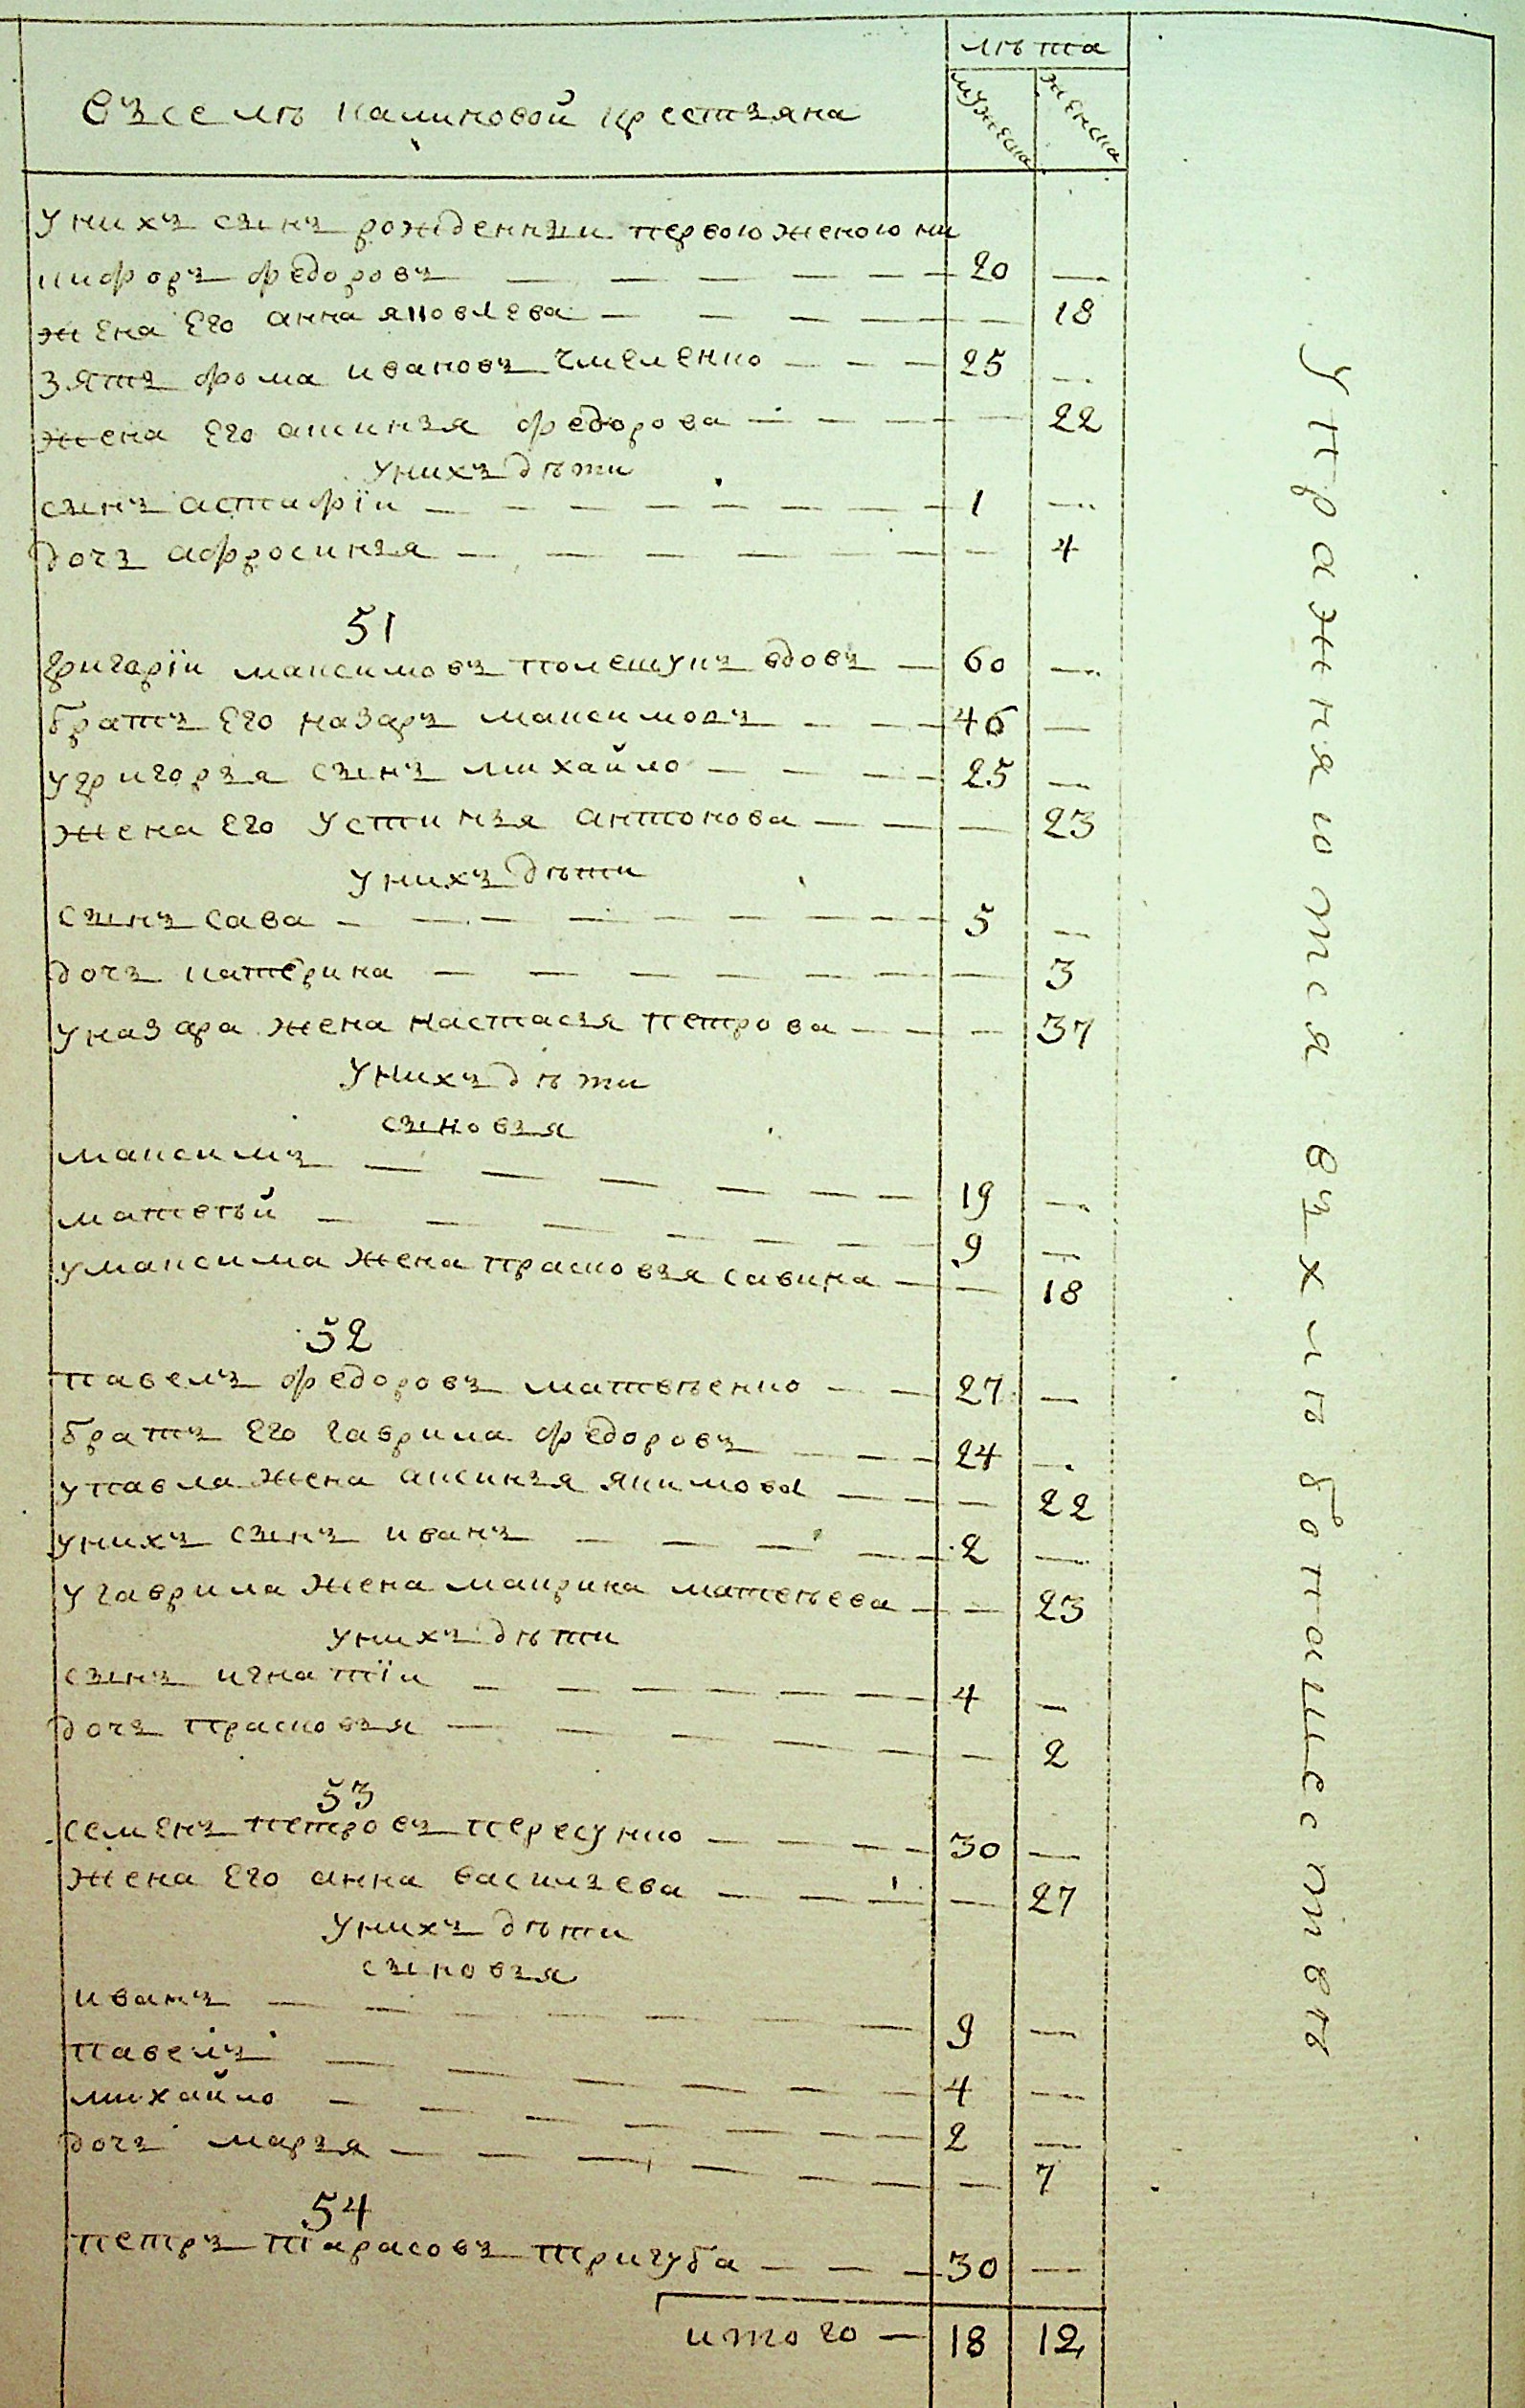 лѣта
Въселѣ калиновой крестьяна
мужеска
женска
унихъ сынъ рожденныи первою женою ни
кифоръ федоровъ — 20 —
жена его анна яковлева — — 18
зять фома ивановъ чмеленко — 25 —
жена его аксинья федорова — — 22
унихъ дѣти
сынъ астафїи — 1 —
дочь афросинья — — 4
51
григорїи максимовъ полешукъ вдовъ — 60 —
братъ его назаръ максимовъ — 46 —
угригорья сынъ михайло — 25 —
жена его устинья антонова — — 23
унихъ дѣти
сынъ сава — 5 —
дочь катерина — — 3
уназара жена настасья петрова — — 37
унихъ дѣти
сыновья
максимъ — 19 —
матвѣй — 9 —
умаксима жена прасковья савина — — 18
52
павелъ федоровъ матвѣенко — 27 —
братъ его гаврила федоровъ — 24 —
упавла жена аксинья якимова — — 22
унихъ сынъ иванъ — 2 —
угаврила жена маврина матвѣева — — 23
унихъ дѣти
сынъ игнатїи — 4 —
дочь прасковья — — 2
53
семенъ петровъ пересунко — 30 —
жена его анна васильева — — 27
унихъ дѣти
сыновья
иванъ — 9 —
павелъ — 4 —
михайло — 2 —
дочь марья — — 7
54
петръ тарасовъ тригуба — 30 —
итого — 18 12
упражняются въхлѣбопашествѣ